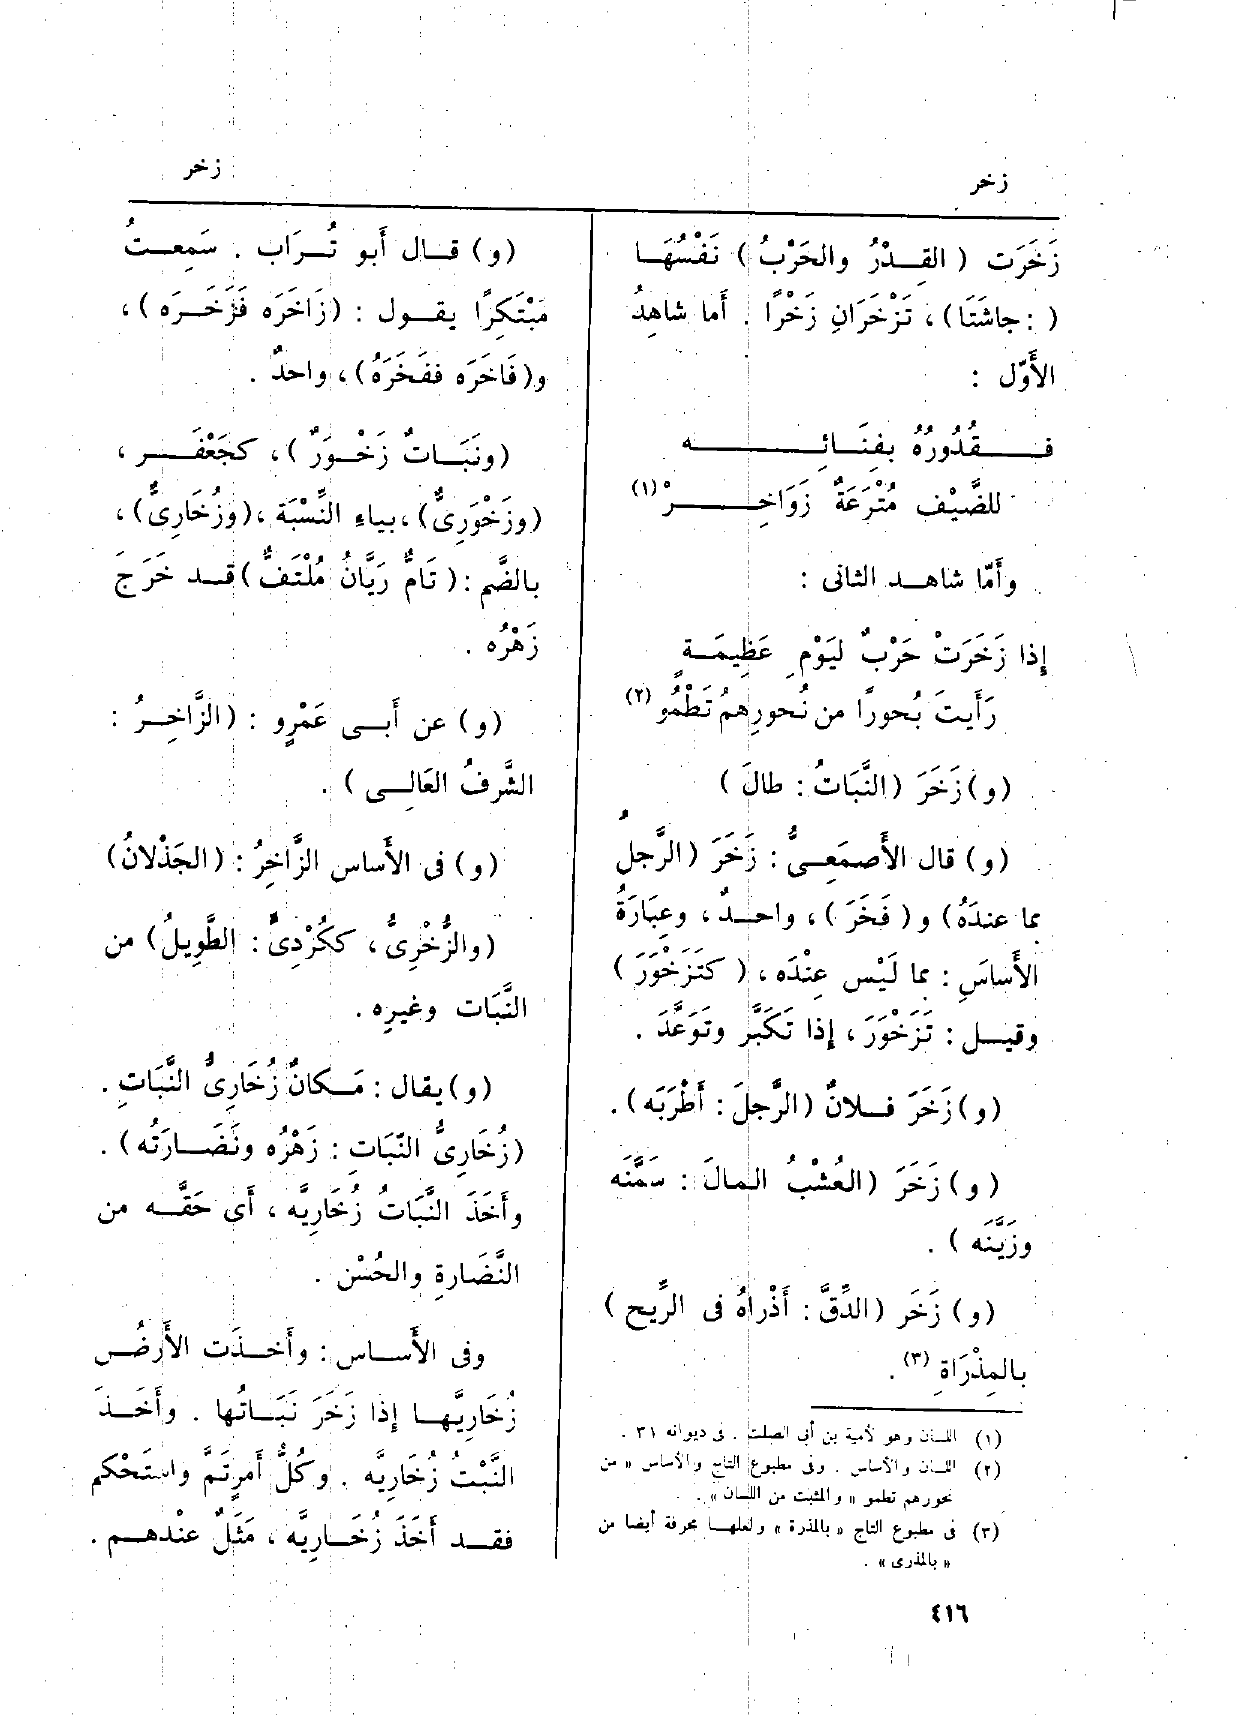 زخر
زخر
زَخَرَت (القِدْرُ والحَرْبُ) نَفْسُهَا
(: جاشَتَا)، تَزْخَرَانِ زَخْرًا . أما شاهِدُ
الأَوّل :
فقُدُورُهُ بِفِنَائِه
للضَّيْف مُتْرَعَةٌ زَوَاخِرْ (١)
وأَمّا شاهد الثانى :
إِذا زَخَرَتْ حَرْبٌ لِيَوْمِ عَظِيمَةٍ
رَأَيتَ بُحورًا من نُحورِهمُ تَطْمُو (٢)
(و) زَخَرَ (النَّبَاتُ : طالَ)
(و) قال الأَصمَعِىُّ : زَخَرَ (الرَّجلُ
بما عندَهُ) و (فَخَرَ)، واحدٌ، وعِبَارَةُ
الأَساسَِ : بما لَيْس عِنْدَه، (كتَزَخْوَرَ)
وقيل : تَزَخْوَرَ، إِذا تَكَبَّر وتَوَعَّدَ .
(و) زَخَرَ فلانٌ (الرَّجلَ : أَطْرَبَه) .
(و) زَخَرَ (العُشْبُ المالَ : سَمَّنَه
وزَيَّنَه) .
(و) زَخَر (الدِّقَّ : أَذْراهُ فى الرِّيح)
بالمِذْرَاةِ (٣) .
(١) اللسان وهو لأمية بن أبى الصلت . فى ديوانه ٣١ .
(٢) اللسان والأساس . وفى مطبوع التاج والأساس « من
نحورهم تطمو » والمثبت من اللسان » .
(٣) فى مطبوع التاج « بالمذرة » ولعلها محرفة أيضا من
« بالمذرى » .
(و) قال أَبو تُرَاب . سَمِعتُ
مَبْتَكِرًا يقول : (زَاخَرَه فَزَخَرَه)،
و(فَاخَرَه ففَخَرَهُ)، واحدٌ .
(ونَبَاتٌ زَخْوَرٌ)، كجَعْفَر،
(وزَخْوَرِىٌّ)، بياءِ النِّسْبَة، (وزُخَارِىٌّ)،
بالضَّم : (تَامٌّ رَيَّانُ مُلْتَفٌّ) قد خَرَجَ
زَهْرُه .
(و) عن أَبى عَمْرٍو : (الزَّاخِرُ :
الشَّرفُ العَالِى) .
(و) فى الأَساس الزَّاخِرُ : (الجَذْلانُ)
(والزُّخْرِىُّ، ككُرْدِىٍّ : الطَّوِيلُ) من
النَّبَات وغيرِه .
(و) يقال : مَكانٌ زُخَارِىُّ النَّبَاتِ .
(زُخَارِىُّ النّبَاتِ : زَهْرُه ونَضَارَتُه) .
وأَخَذَ النَّبَاتُ زُخَارِيَّه، أَى حَقَّه من
النَّضَارةِ والحُسْن .
وفى الأَساس : وأَخذَت الأَرضُ
زُخَارِيَّها إِذا زَخَرَ نَبَاتُها . وأَخَذَ
النَّبْتُ زُخَارِيَّه . وكُلُّ أَمرٍ تَمَّ واستَحْكم
فقد أَخَذَ زُخَارِيَّه، مَثَلٌ عندهم .
٤١٦